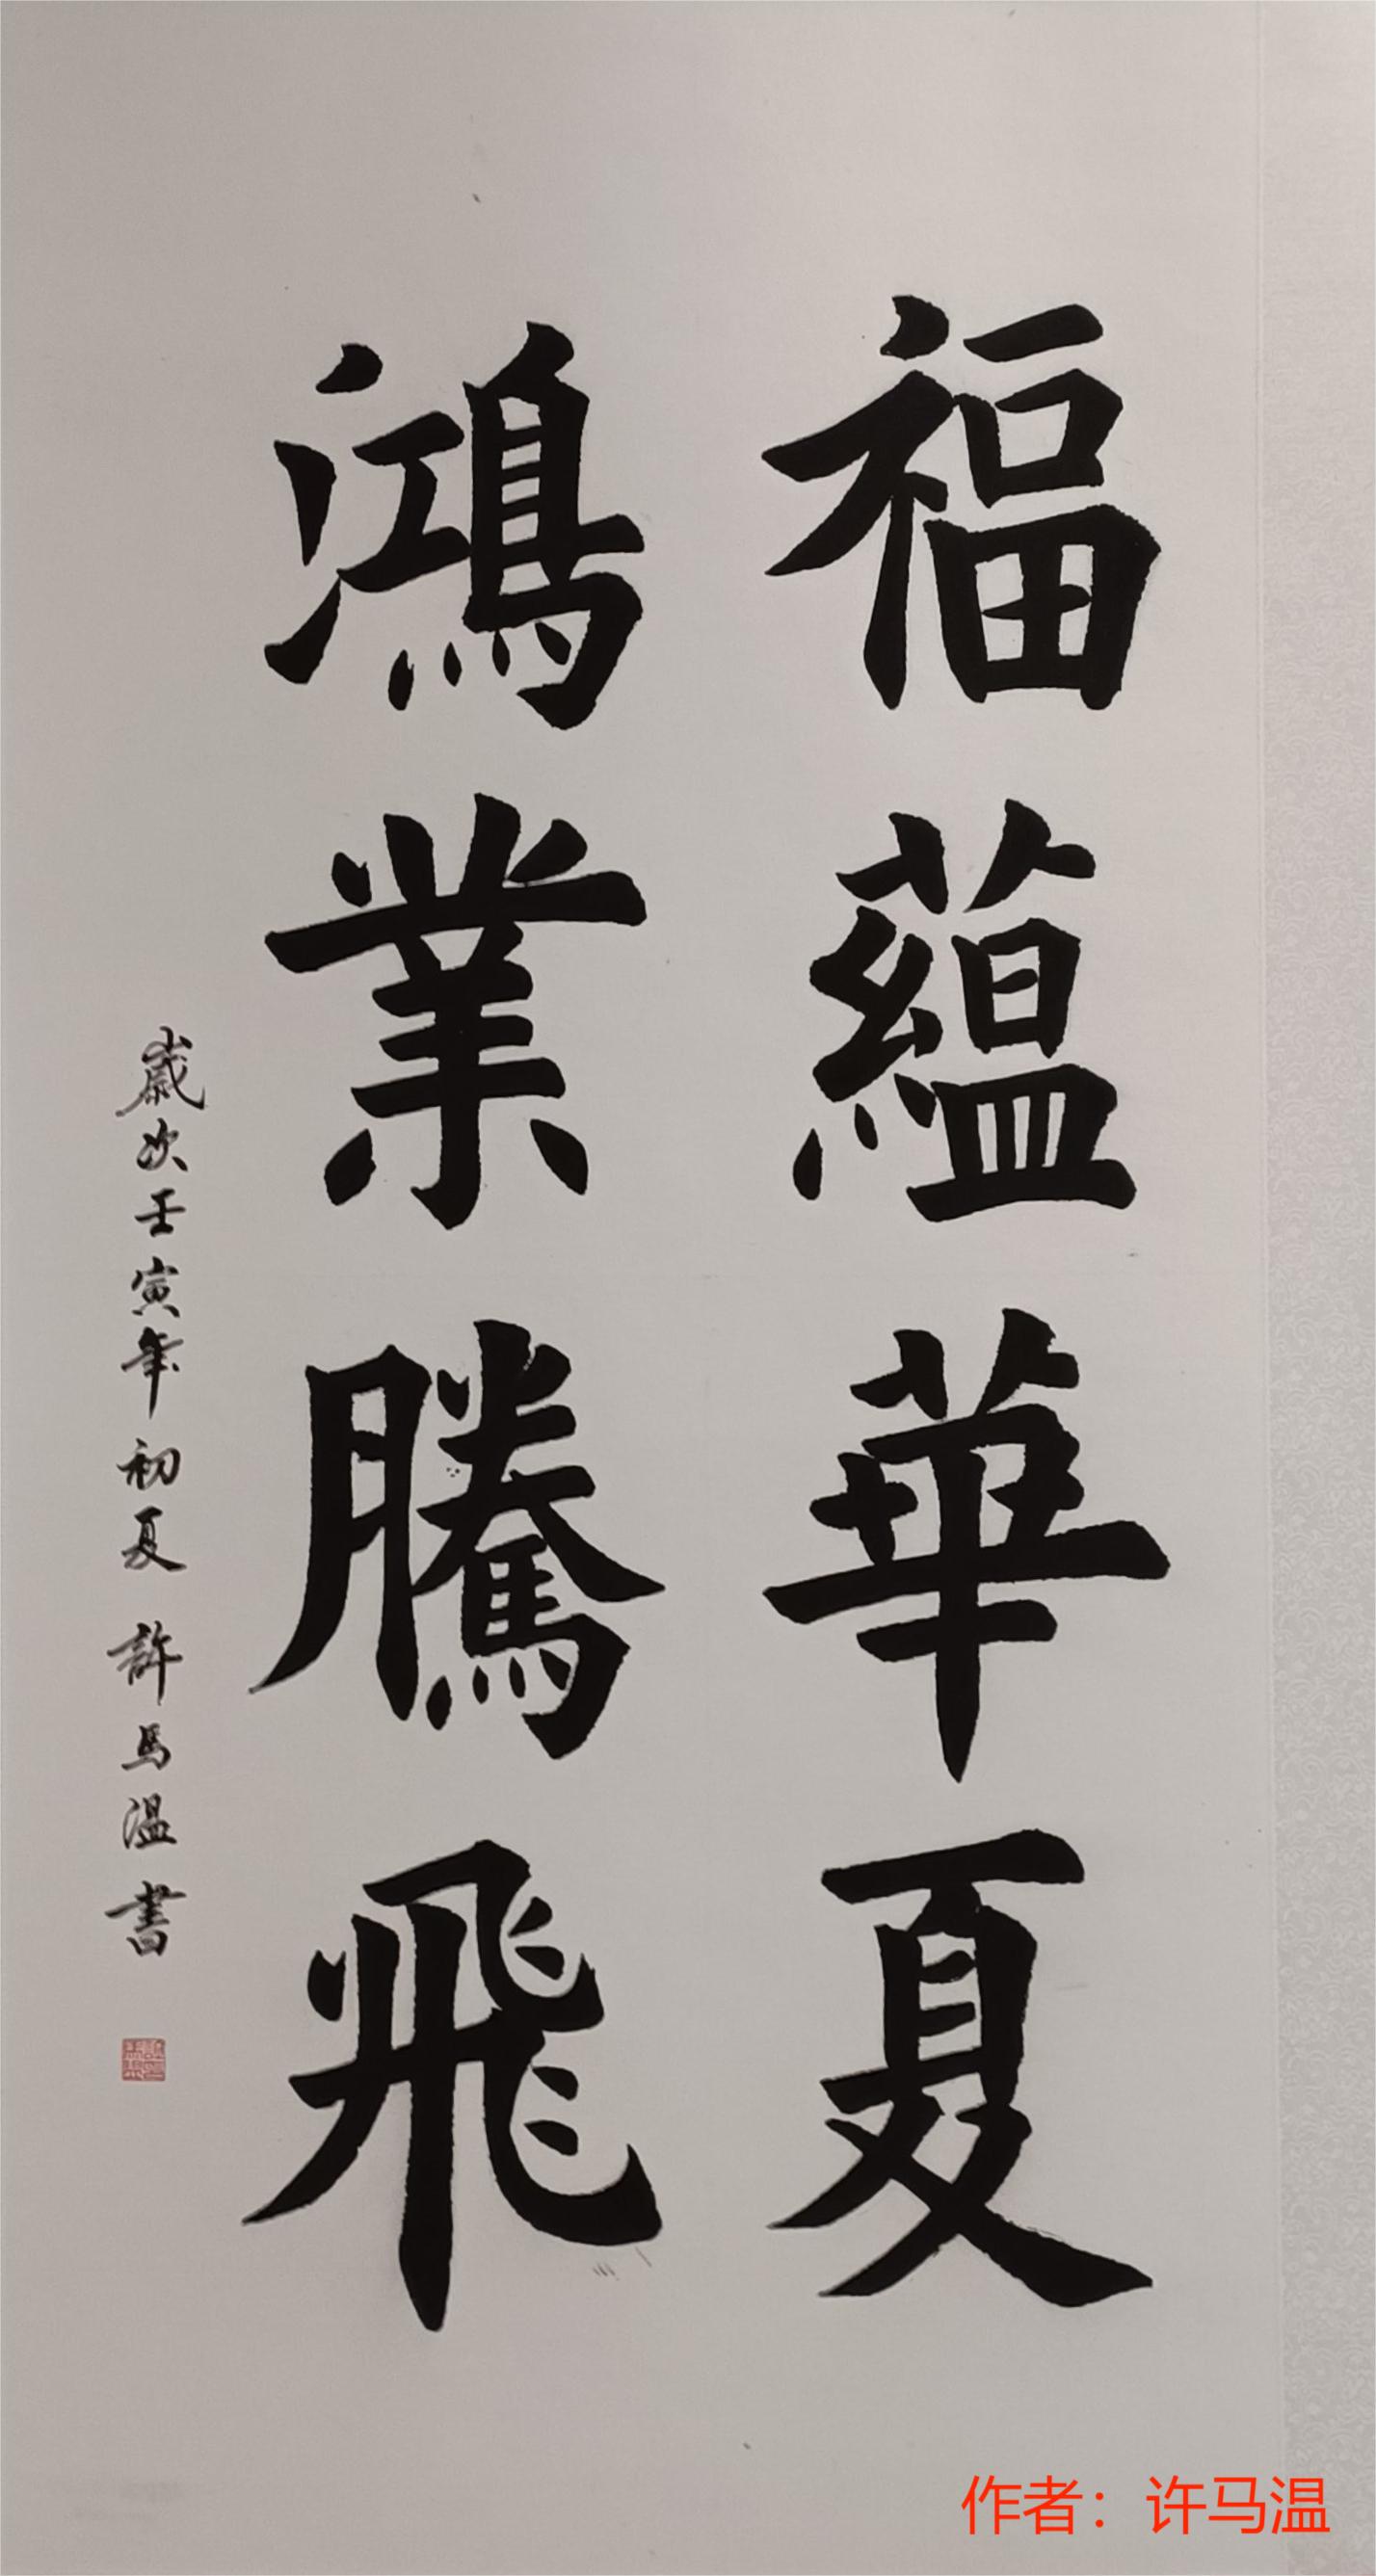 福蘊華夏
鴻業騰飛
歲次壬寅年初夏 許馬溫書
作者：许马温